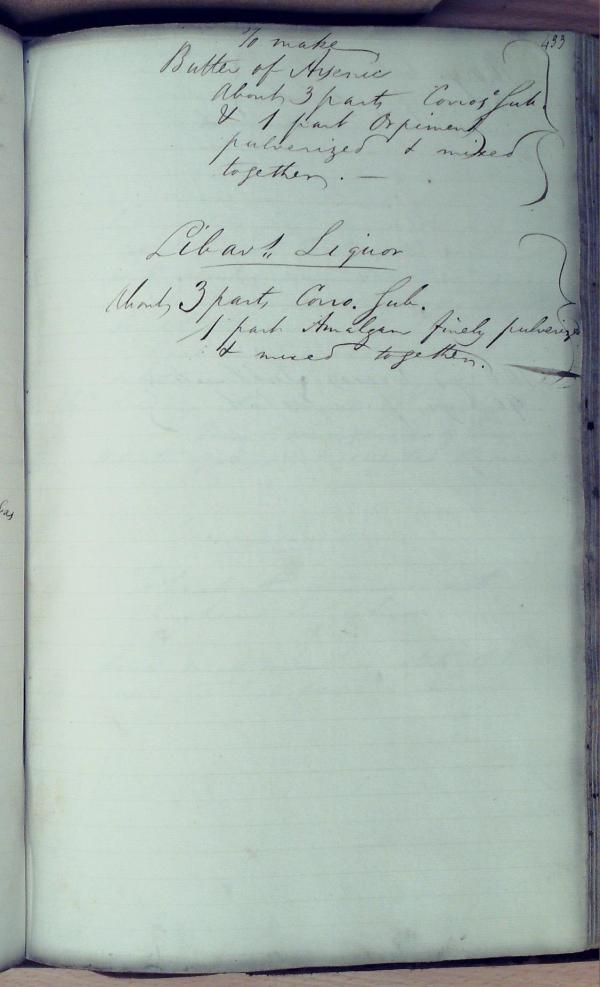 433
To make
Butter of Arsenic
About 3 parts Corros. Sub.
& 1 part Orpiment
pulverized & mixed
together. —
Libav.s Liquor
About 3 parts Corro. Sub.
1 part Amalgam finely pulverized
& mixed together.